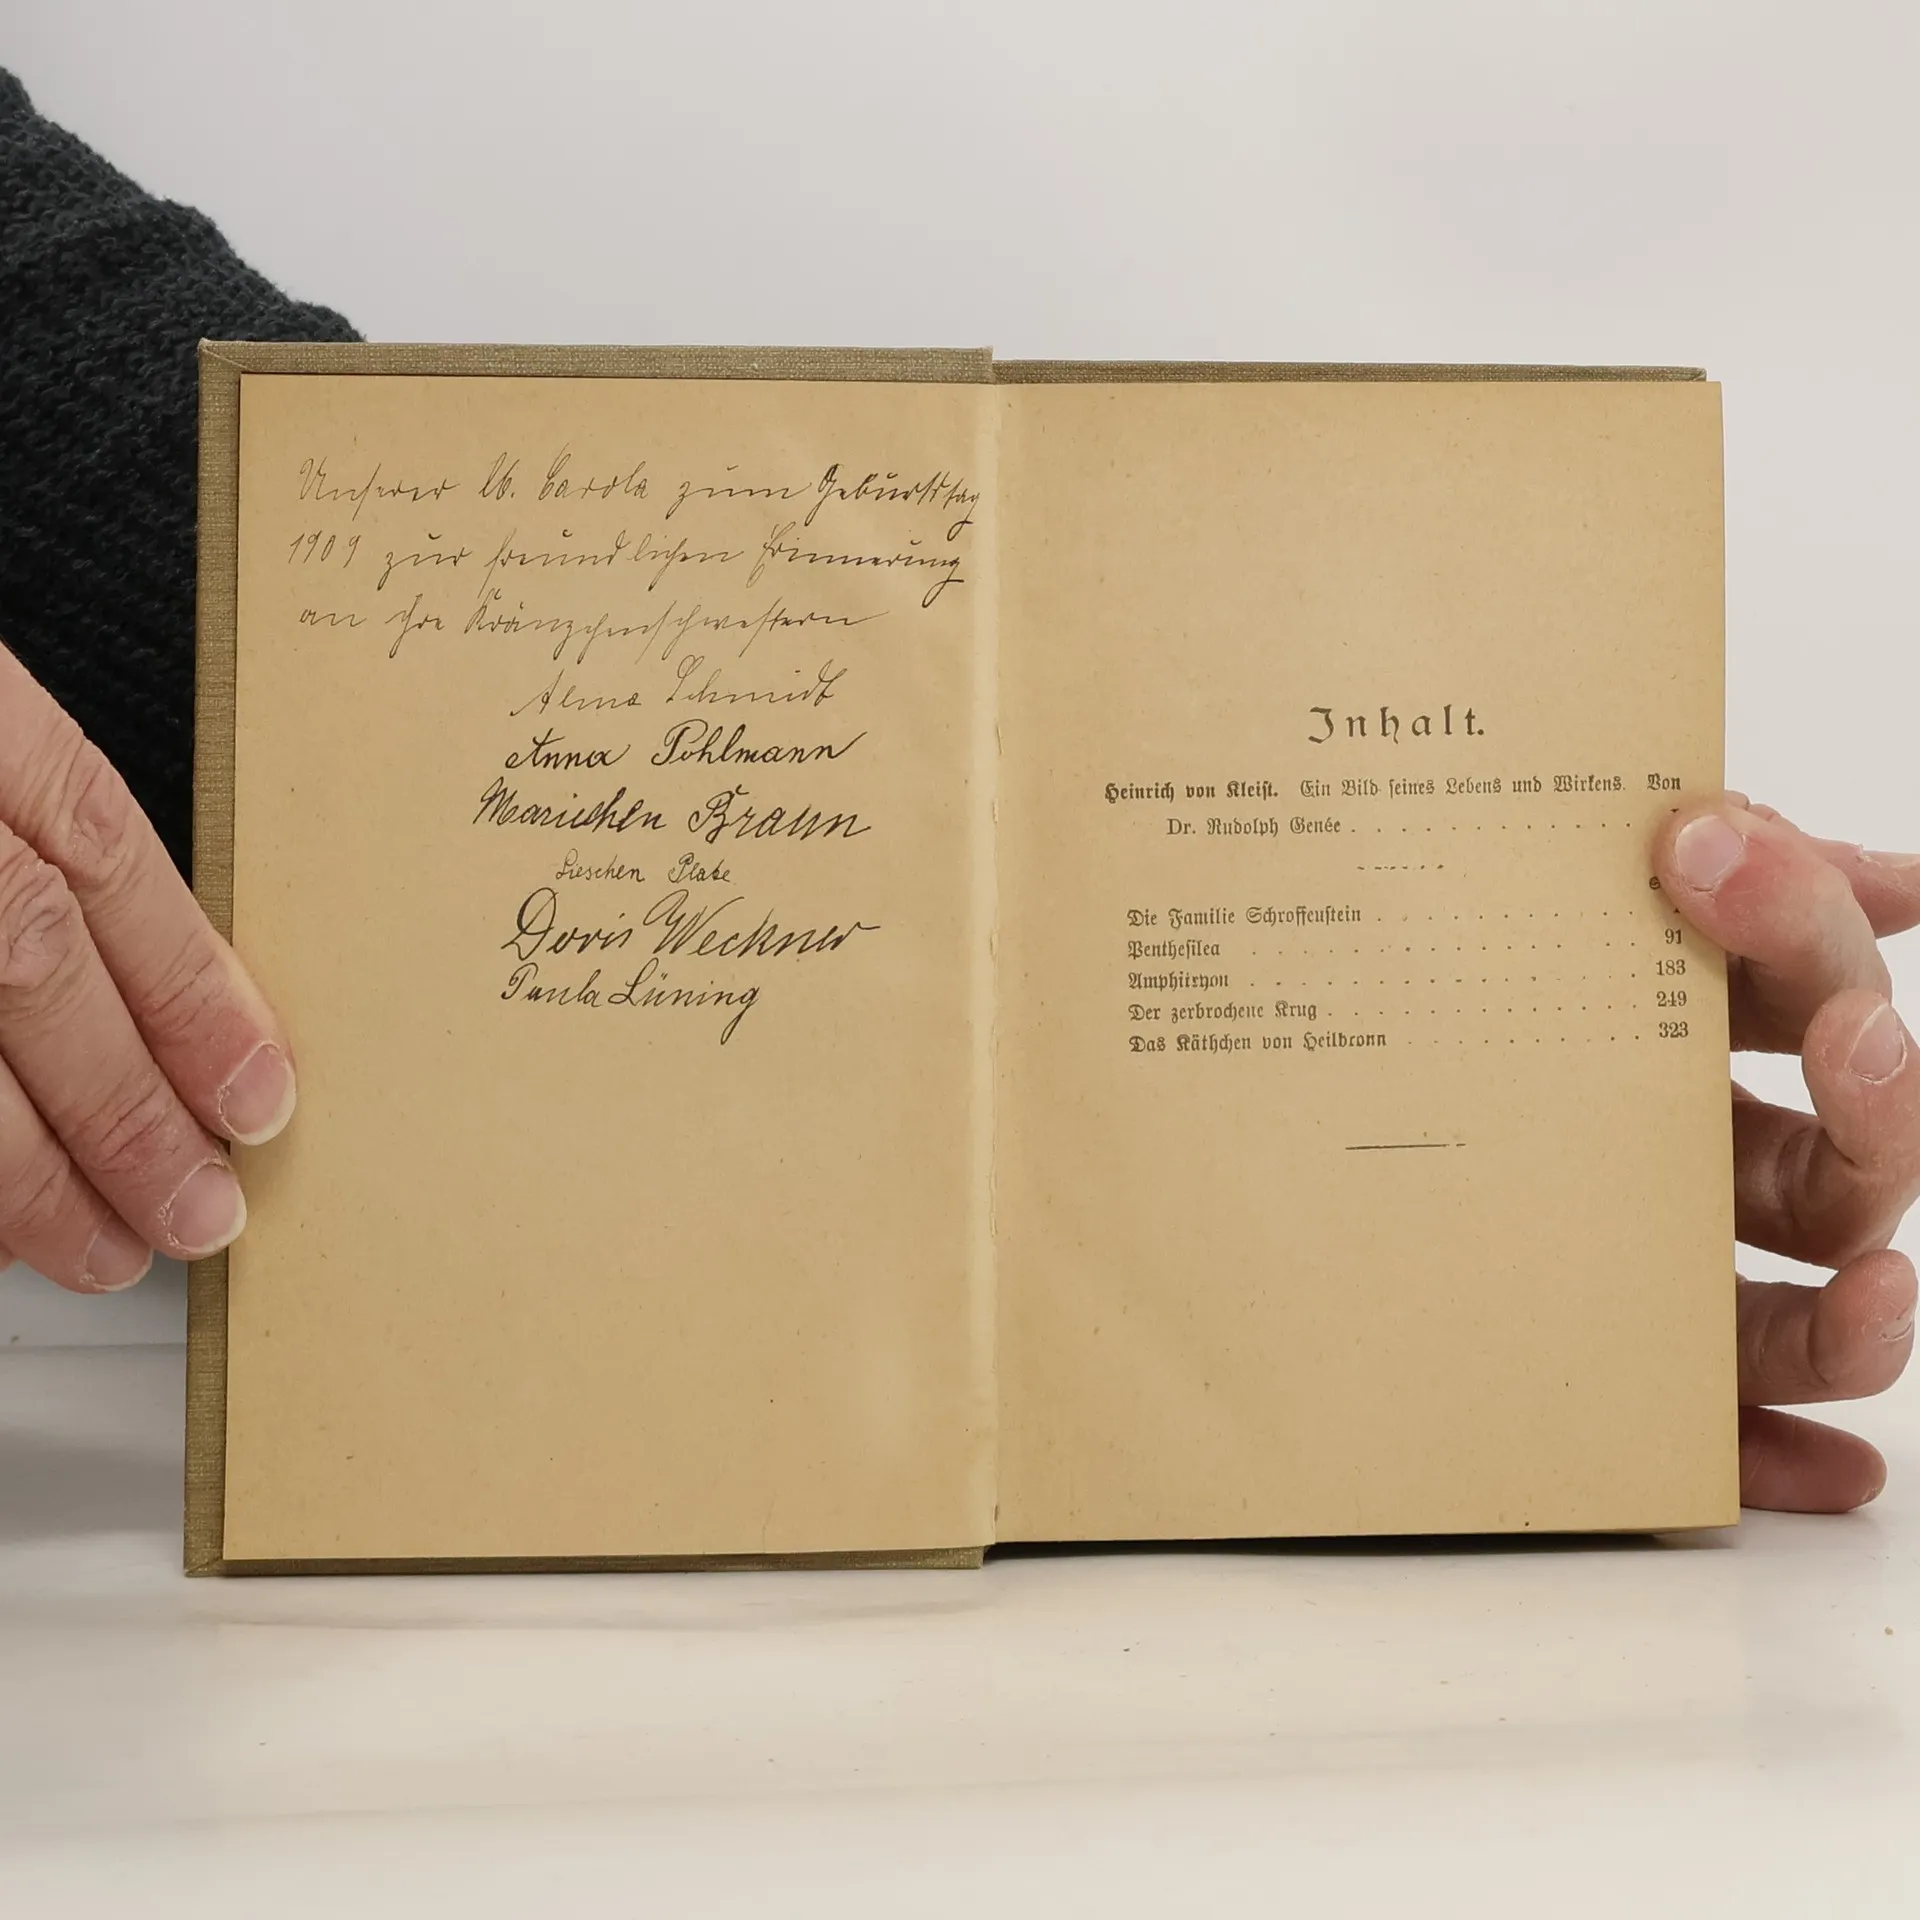 Unserer lb. Carola zum Geburtstag
1909 zur freundlichen Erinnerung
an ihre Kränzchenschwestern
Alma Schmidt
Anna Pohlmann
Mariechen Braun
Lieschen Plate
Doris Weckner
Paula Lüning
Inhalt.
Heinrich von Kleist. Ein Bild seines Lebens und Wirkens. Von
Dr. Rudolph Genée . . . . . . . . . . . .
Die Familie Schroffenstein . . . . . . . . . .
Penthesilea . . . . . . . . . . . . 91
Amphitryon . . . . . . . . . . . . . 183
Der zerbrochene Krug . . . . . . . . . . . . 249
Das Käthchen von Heilbronn . . . . . . . . . . 323